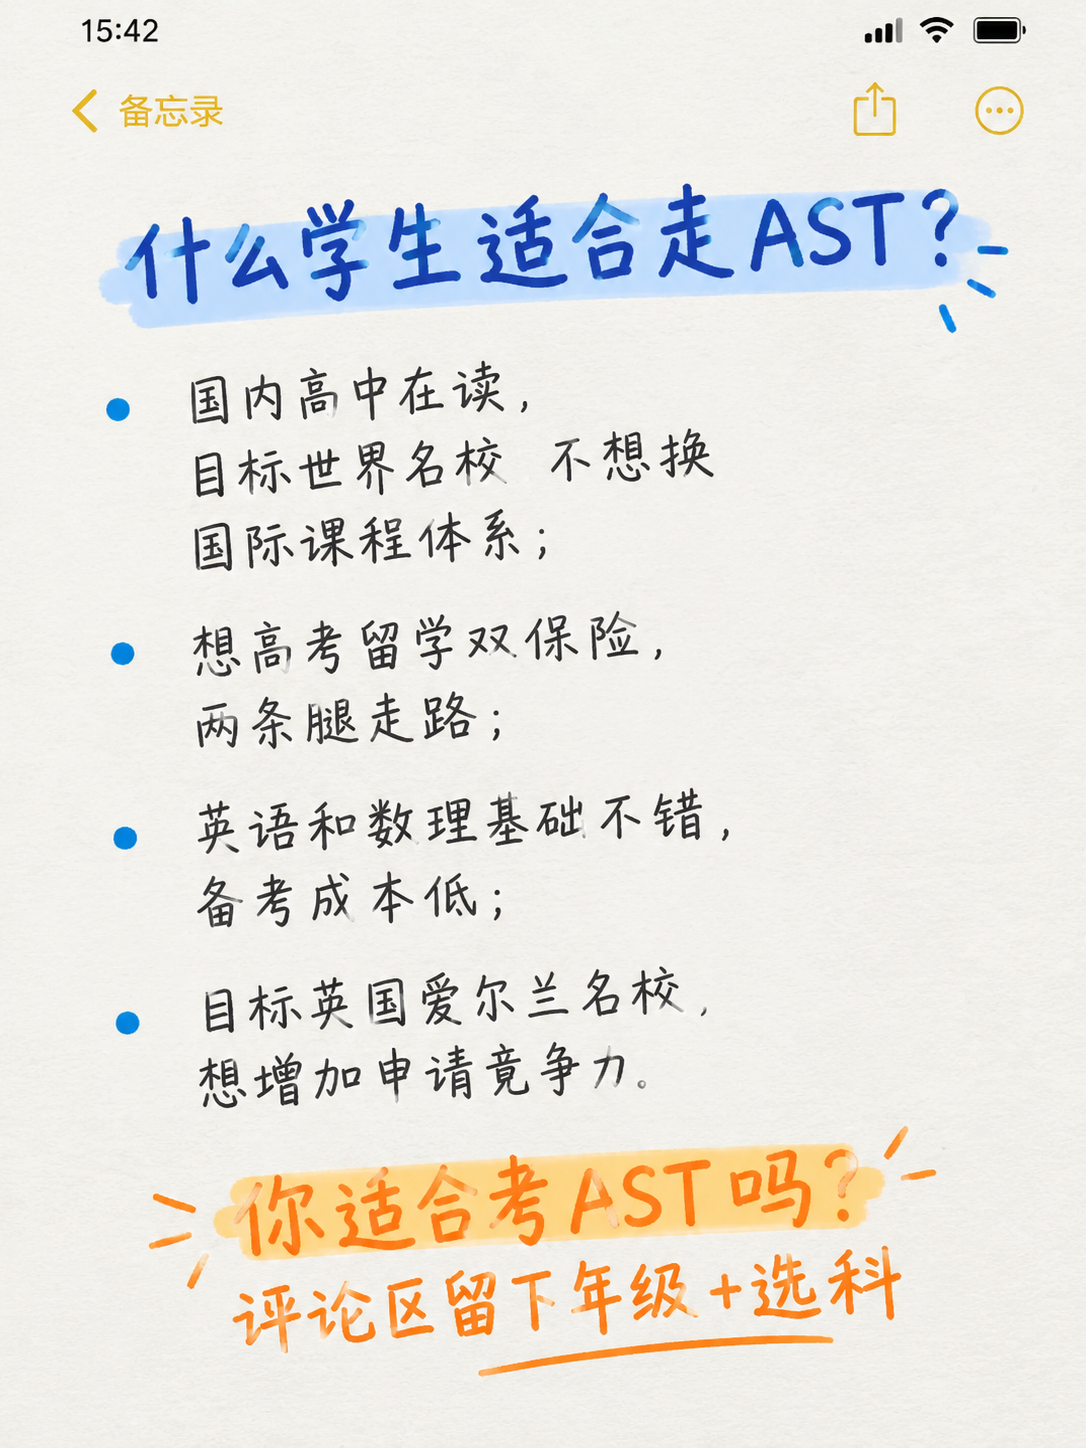 15:42
备忘录
什么学生适合走AST?
国内高中在读,
目标世界名校 不想换
国际课程体系;
想高考留学双保险,
两条腿走路;
英语和数理基础不错,
备考成本低;
目标英国爱尔兰名校,
想增加申请竞争力。
你适合考AST吗?
评论区留下年级+选科